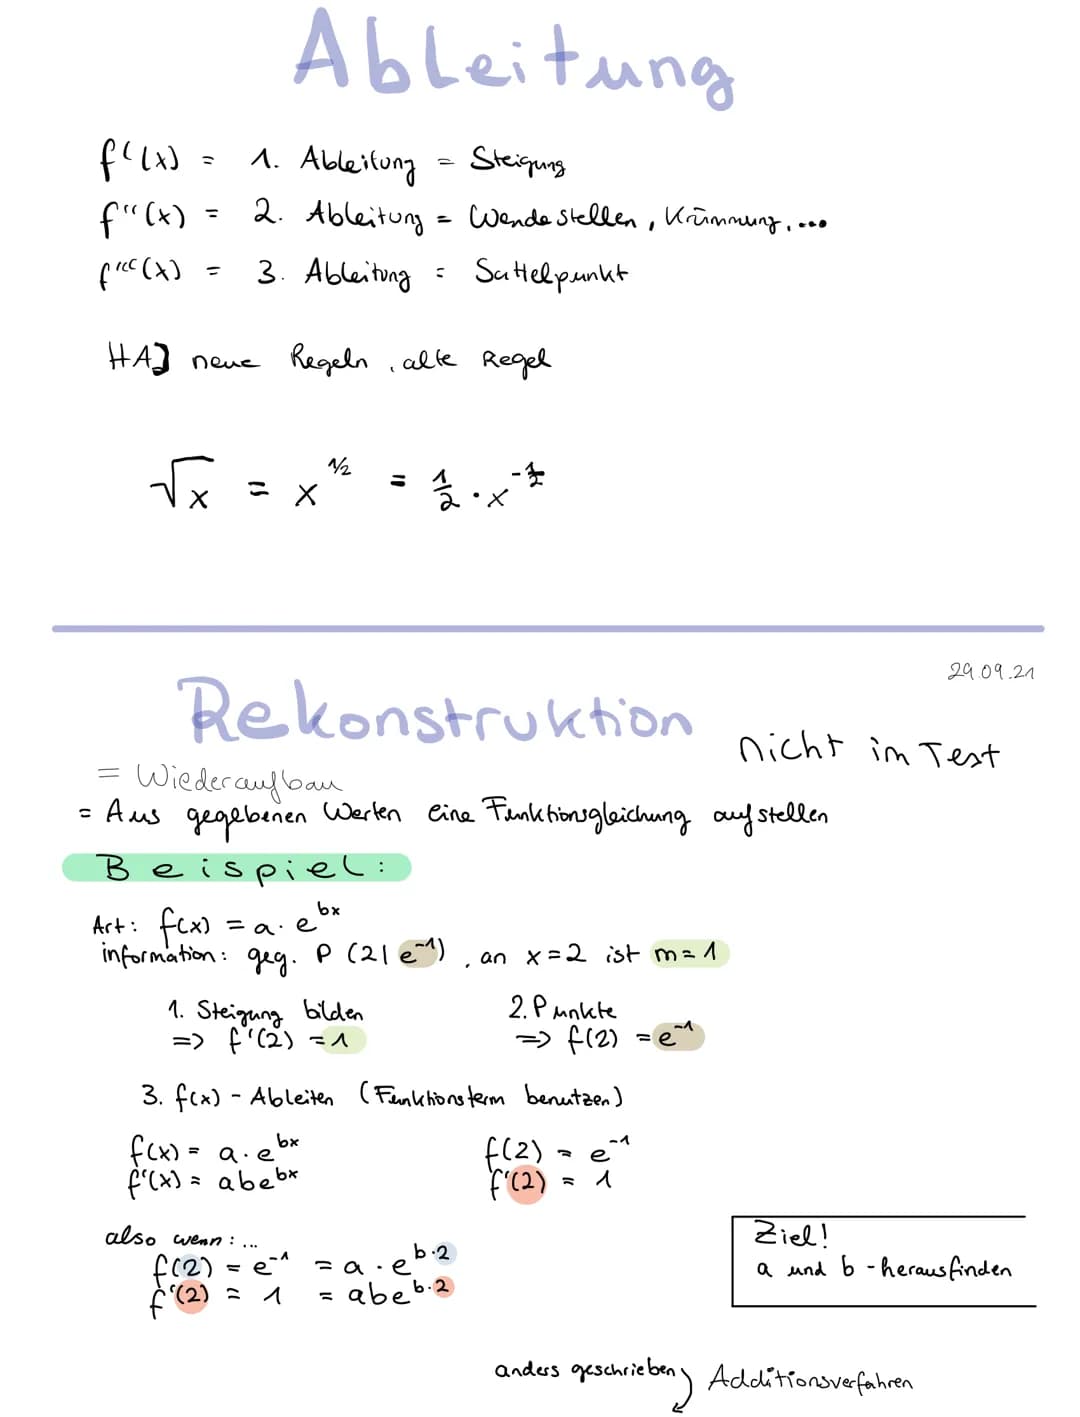 Ableitung
f'(x) = 1. Ableitung = Steigung
f''(x) = 2. Ableitung = Wendestellen, Krümmung, ...
f'''(x) = 3. Ableitung = Sattelpunkt
HA] neue Regeln, alte Regel
√x = x^1/2 = 1/2 · x^-1/2
29.09.21
Rekonstruktion
nicht im Test
= Wiederaufbau
= Aus gegebenen Werten eine Funktionsgleichung aufstellen
Beispiel:
Art: f(x) = a · e^bx
information: geg. P (2| e^-1), an x=2 ist m=1
1. Steigung bilden 2. Punkte
=> f'(2) = 1 => f(2) = e^-1
3. f(x) - Ableiten (Funktionsterm benutzen)
f(x) = a · e^bx f(2) = e^-1
f'(x) = abe^bx f'(2) = 1
also wenn: ...
f(2) = e^-1 = a · e^b·2
f'(2) = 1 = abe^b·2
Ziel!
a und b - herausfinden
anders geschrieben Additionsverfahren